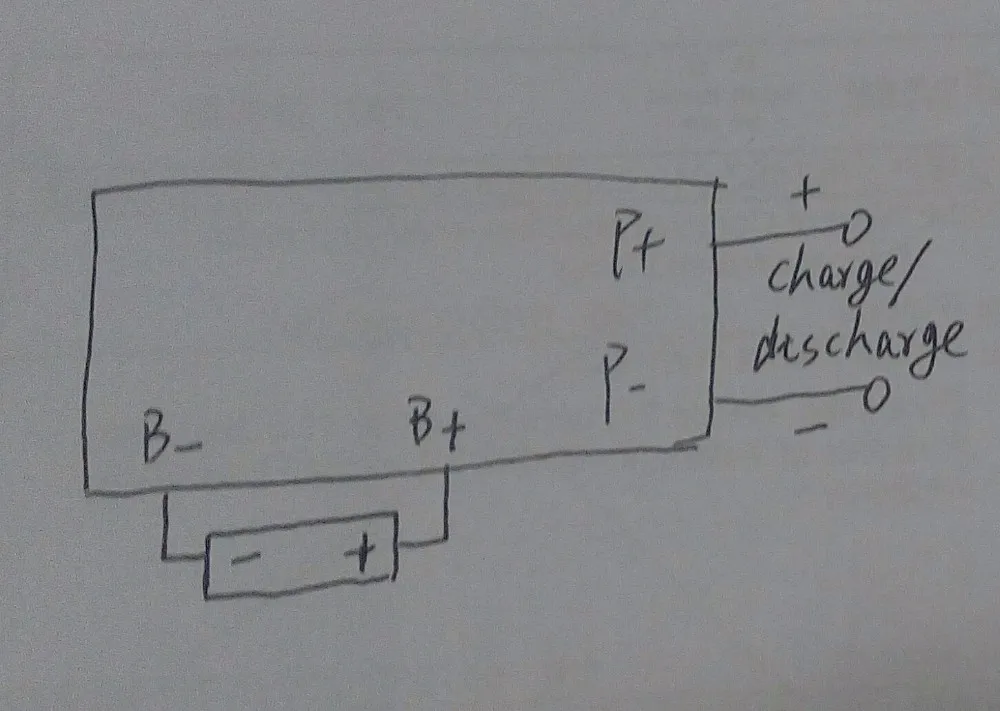 +
P+
charge/
discharge
P-
-
B-
B+
- +